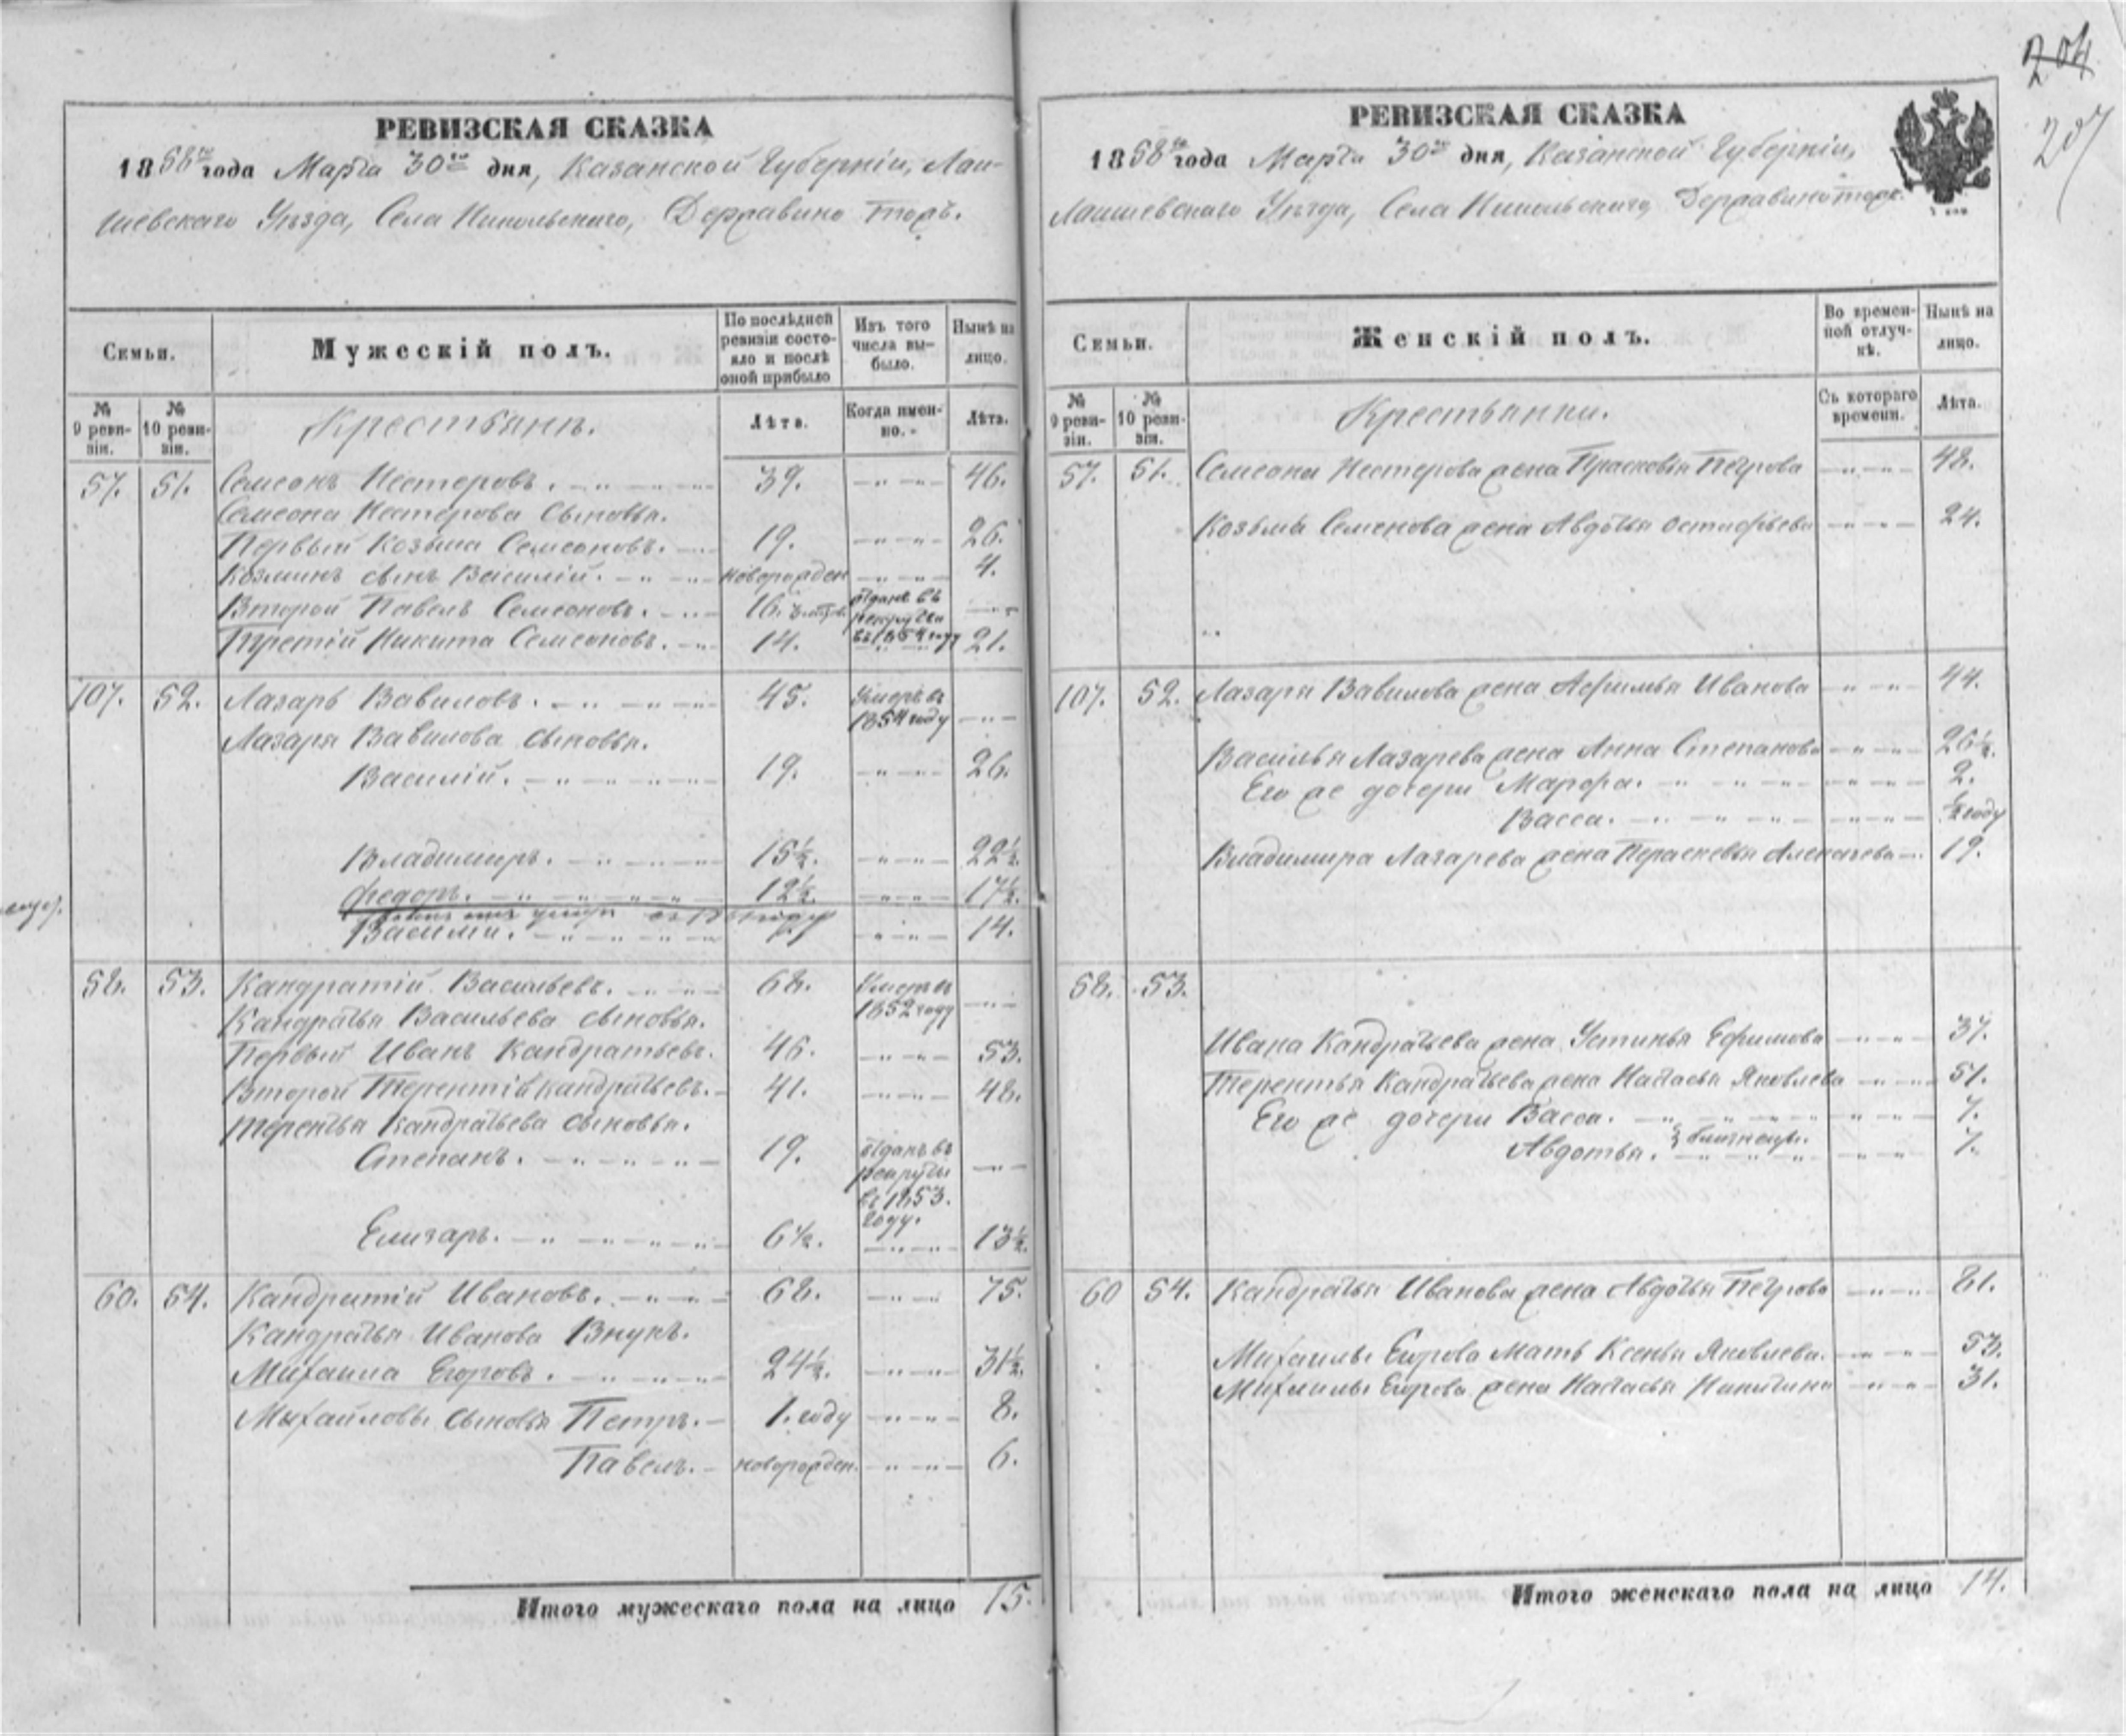 204
207
РЕВИЗСКАЯ СКАЗКА
1858го года Марта 30го дня, Казанской Губерніи, Лаи-
шевскаго Уѣзда, Села Никольскаго, Державино тожъ.
Семьи.
Мужескій полъ.
По послѣдней ревизіи состо-
яло и послѣ оной прибыло
Изъ того числа вы-
было.
Нынѣ на лицо.
№ 9 реви-
зіи.
№ 10 реви-
зіи.
Крестьянъ.
Лѣта.
Когда имен-
но.
Лѣта.
57. 51. Семеонъ Нестеровъ. 39. 46.
Семеона Нестерова сыновья.
Первый Козьма Семеоновъ. 19. 26.
Козминъ сынъ Василій. новорожден 4.
Второй Павелъ Семеоновъ. 16. отданъ въ рекруты въ 1854 году
Третій Никита Семеоновъ. 14. 21.
107. 52. Лазарь Вавиловъ. 45. Умеръ въ 1854 году
Лазаря Вавилова сыновья.
Василій. 19. 26.
Владимиръ. 15½. 22½.
Федоръ. 12½. 17½.
Василій. 14.
58. 53. Кандратій Васильевъ. 68. Умеръ въ 1852 году
Кандратья Васильева сыновья.
Первый Иванъ Кандратьевъ. 46. 53.
Второй Терентій Кандратьевъ. 41. 48.
Терентья Кандратьева сыновья.
Степанъ. 19. отданъ въ рекруты въ 1853. году.
Елизаръ. 6½. 13½.
60. 54. Кандратій Ивановъ. 68. 75.
Кандратья Иванова Внукъ.
Михаила Егоровъ. 24½. 31½.
Михайловы сыновья Петръ. 1. году 8.
Павелъ. новорожден. 6.
Итого мужескаго пола на лицо 15.
РЕВИЗСКАЯ СКАЗКА
1858го года Марта 30го дня, Казанской Губерніи,
Лаишевскаго Уѣзда, Села Никольскаго, Державино тожъ.
Семьи.
Женскій полъ.
Во времен-
ной отлуч-
кѣ.
Нынѣ на лицо.
№ 9 реви-
зіи.
№ 10 реви-
зіи.
Крестьянки.
Съ котораго времени.
Лѣта.
57. 51. Семеона Нестерова жена Прасковья Петрова 48.
Козьма Семенова жена Авдотья Остафьева 24.
107. 52. Лазаря Вавилова жена Афимья Иванова 44.
Василья Лазарева жена Анна Степанова 26½.
Его же дочери Марфа. 2.
Васса. ½ году
Владимира Лазарева жена Параскевья 19.
58. 53.
Ивана Кандратьева жена Устинья Ефимова 37.
Терентья Кандратьева жена Настасья Яковлева 51.
Его же дочери Васса. 7.
Авдотья. близнецы. 7.
60 54. Кандратья Иванова жена Авдотья Петрова 81.
Михаилы Егорова Мать Ксенья Яковлева. 53.
Михаилы Егорова жена Настасья Никитина 31.
Итого женскаго пола на лицо 14.